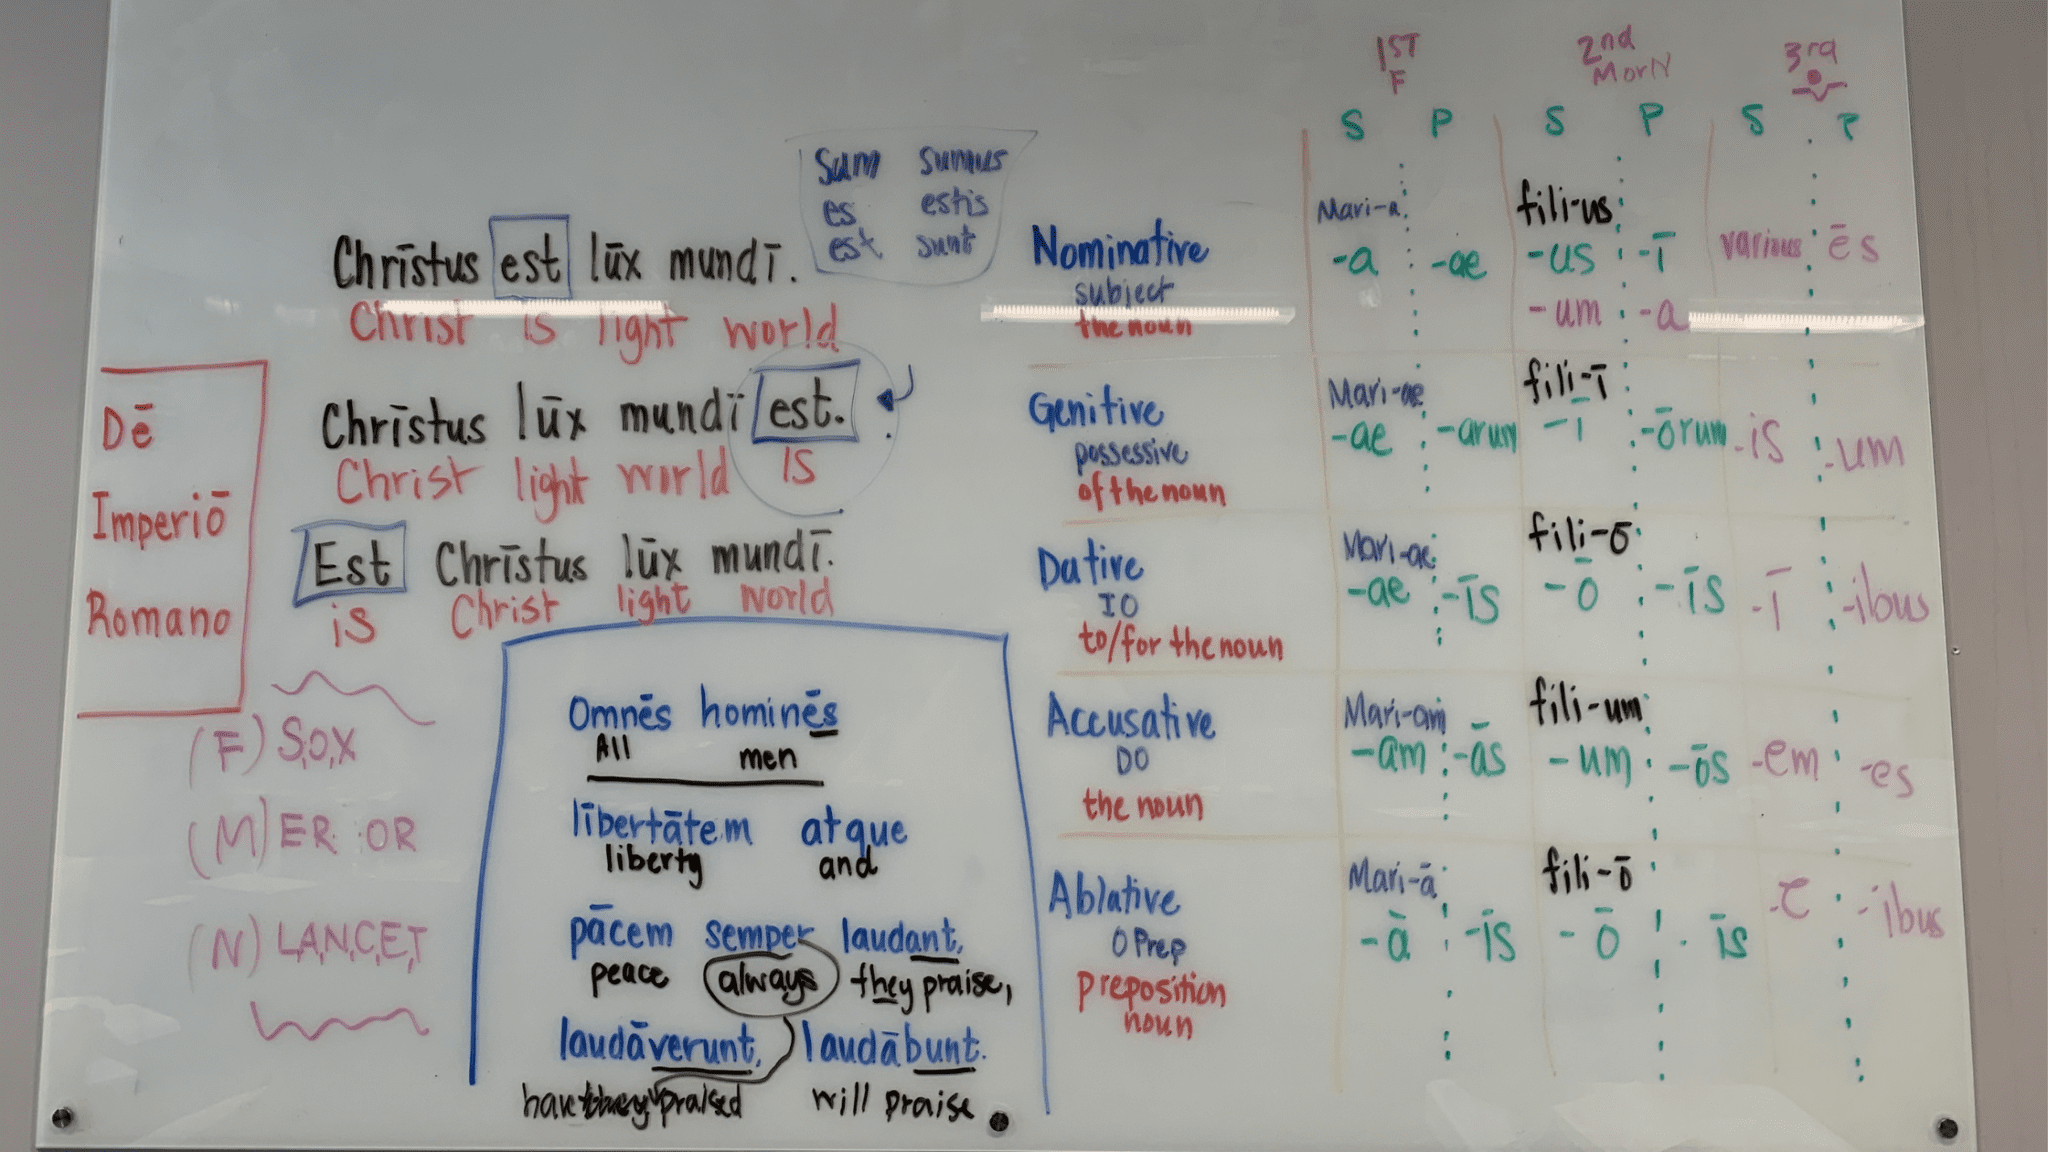 Sum sumus
es estis
est sunt
Christus est lūx mundī.
Christ is light world
Christus lūx mundī est.
Christ light world is
Est Christus lūx mundī.
is Christ light world
Dē
Imperiō
Romano
(F) S,O,X
(M) ER OR
(N) L,A,N,C,E,T
Omnēs hominēs
All men
lībertātem atque
liberty and
pācem semper laudant,
peace always they praise,
laudāverunt, laudābunt.
praised will praise
1ST 2nd 3rd
F M or N
S P S P S P
Nominative Mari-a fili-us
subject -a -ae -us -ī various ēs
the noun -um -a
Genitive Mari-ae fili-ī
possessive -ae -arum -ī -ōrum -is -um
of the noun
Dative Mari-ae fili-ō
IO -ae -īs -ō -īs -ī -ibus
to/for the noun
Accusative Mari-am fili-um
DO -am -ās -um -ōs -em -es
the noun
Ablative Mari-ā fili-ō
O Prep -ā -īs -ō - īs -e -ibus
preposition
noun